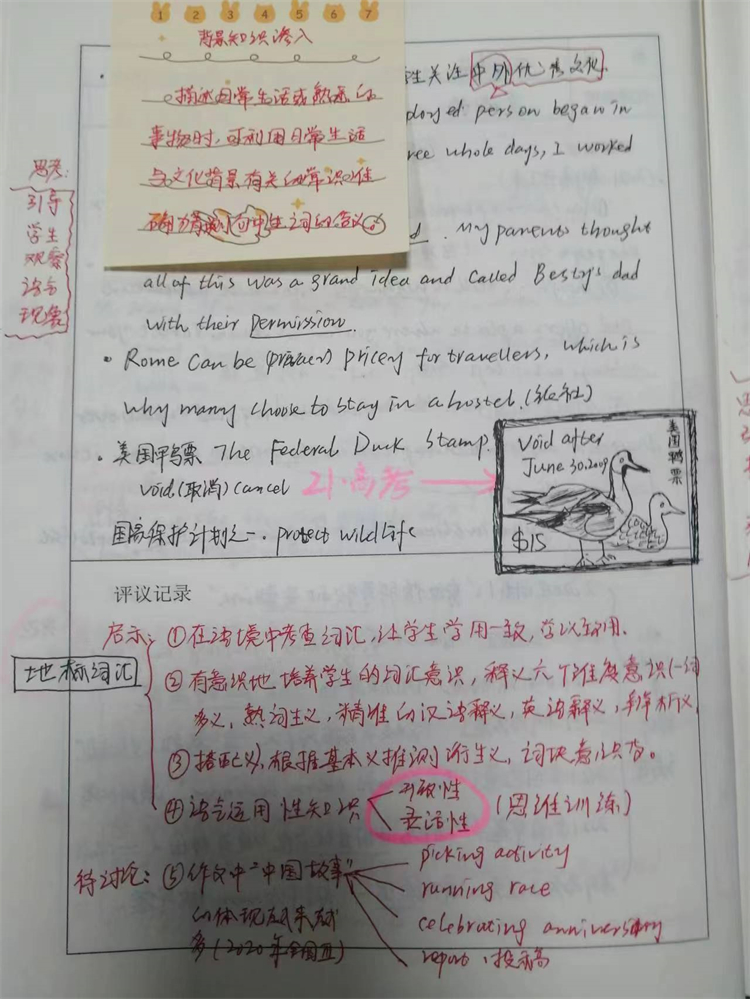 1 2 3 4 5 6 7
背景知识渗入
描述日常生活或熟悉的
事物时,可利用日常生活
与文化背景有关的常识准
生关注中外优秀文化.
ployed person began in
ree whole days, I worked
My parents thought
all of this was a grand idea and called Besty's dad
with their permission.
• Rome can be pricey for travellers, which is
why many choose to stay in a hostel.
• 美国鸭票 The Federal Duck Stamp.
void (取消) cancel 21·高考
国家保护计划之一. protect wildlife
void after
June 30,2009
$15
美国鸭票
思考:
引导
学生
观察
语言
现象
评议记录
启示: ①在语境中考查词汇,让学生学用一致,学以致用.
地标词汇
②有意识地培养学生的词汇意识,释义六个维度意识(一词
多义,熟词生义,精准的汉语释义,英语释义,辨析义
③搭配义),根据基本义推测衍生义,词块意识等。
④语言运用性知识 开放性 灵活性 (思维训练)
待讨论: ⑤作文中"中国故事"
的体现越来越
多(2020年全国Ⅲ)
picking activity
running race
celebrating anniversary
report、投稿